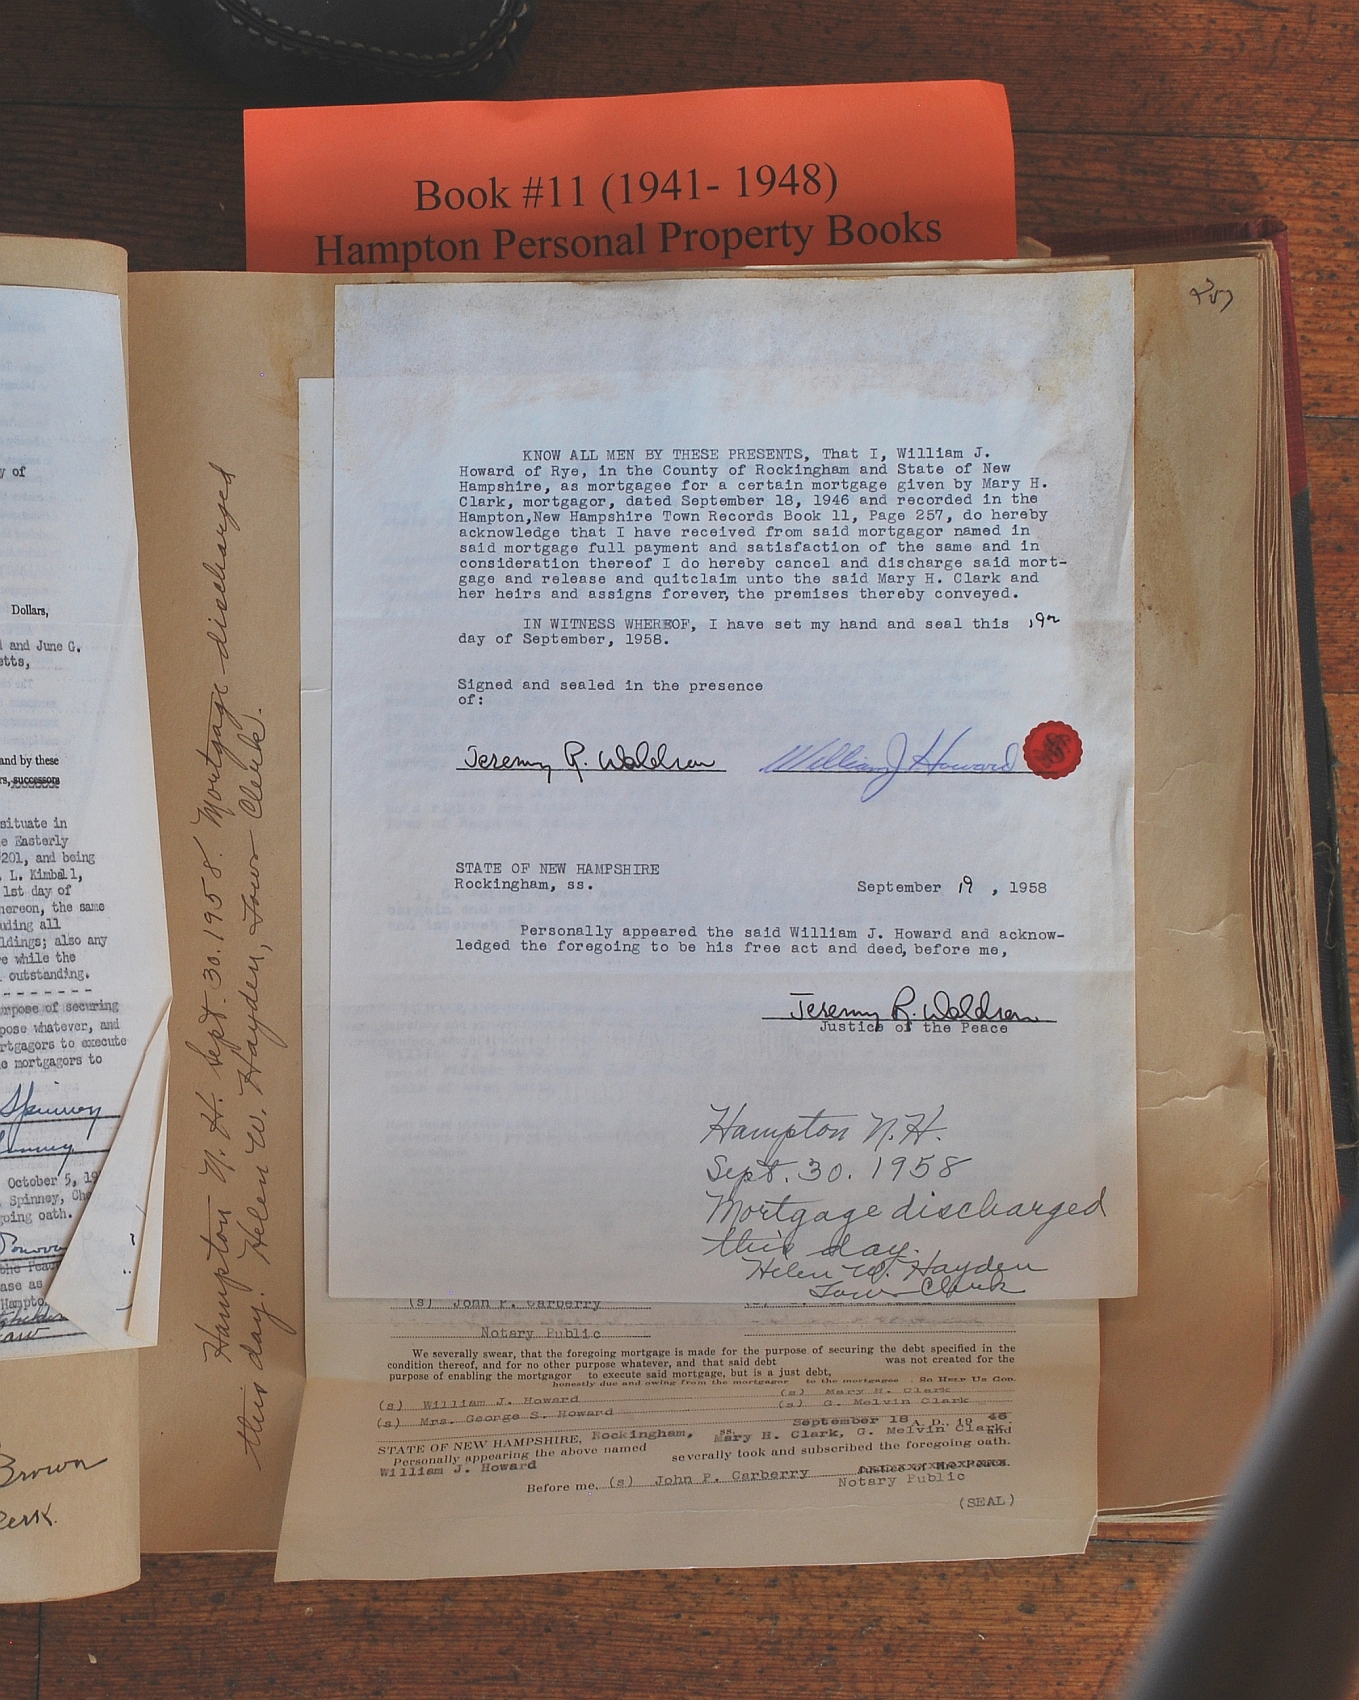 Book #11 (1941- 1948)
Hampton Personal Property Books
257
KNOW ALL MEN BY THESE PRESENTS, That I, William J.
Howard of Rye, in the County of Rockingham and State of New
Hampshire, as mortgagee for a certain mortgage given by Mary H.
Clark, mortgagor, dated September 18, 1946 and recorded in the
Hampton,New Hampshire Town Records Book 11, Page 257, do hereby
acknowledge that I have received from said mortgagor named in
said mortgage full payment and satisfaction of the same and in
consideration thereof I do hereby cancel and discharge said mort-
gage and release and quitclaim unto the said Mary H. Clark and
her heirs and assigns forever, the premises thereby conveyed.
IN WITNESS WHEREOF, I have set my hand and seal this
day of September, 1958.
Signed and sealed in the presence
of:
Jeremy R. Waldron William J. Howard
STATE OF NEW HAMPSHIRE
Rockingham, ss.
September 19 , 1958
Personally appeared the said William J. Howard and acknow-
ledged the foregoing to be his free act and deed, before me,
Jeremy R. Waldron
Justice of the Peace
Hampton N.H.
Sept. 30. 1958
Mortgage discharged
this day.
Helen W. Hayden
Town Clerk
(s) John P. Carberry
Notary Public
We severally swear, that the foregoing mortgage is made for the purpose of securing the debt specified in the
condition thereof, and for no other purpose whatever, and that said debt was not created for the
purpose of enabling the mortgagor to execute said mortgage, but is a just debt,
honestly due and owing from the mortgagor to the mortgagee . So Help Us God.
(s) William J. Howard (s) Mary H. Clark
(s) Mrs. George S. Howard (s) G. Melvin Clark
September 18 A. D. 19 46
STATE OF NEW HAMPSHIRE, Rockingham, ss. Mary H. Clark, G. Melvin Clark and
Personally appearing the above named severally took and subscribed the foregoing oath.
William J. Howard
Before me, (s) John P. Carberry
Notary Public
(SEAL)
Hampton N. H. Sept. 30. 1958. Mortgage discharged
this day. Helen W. Hayden, Town Clerk.
y of
Dollars,
and June G.
etts,
and by these
rs, successors
situate in
e Easterly
201, and being
. L. Kimball,
1st day of
hereon, the same
uding all
ldings; also any
re while the
outstanding.
urpose of securing
pose whatever, and
rtgagors to execute
e mortgagors to
Spinney
October 5, 19
Spinney, Cha
going oath.
the Peace
ase as
Hampto
Brown
Clerk.